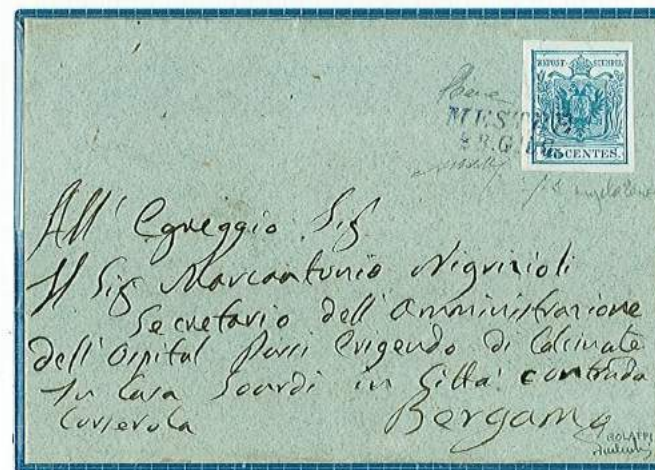 KKPOST-STEMPEL
45 CENTES.
MESTRE
GIUG
All' Egreggio Sig
Il Sig Marcantonio Nigrizioli
Secretario dell' Amministrazione
dell' Ospital Erigendo di Calcinate
In Casa in Città contrada
Bergamo